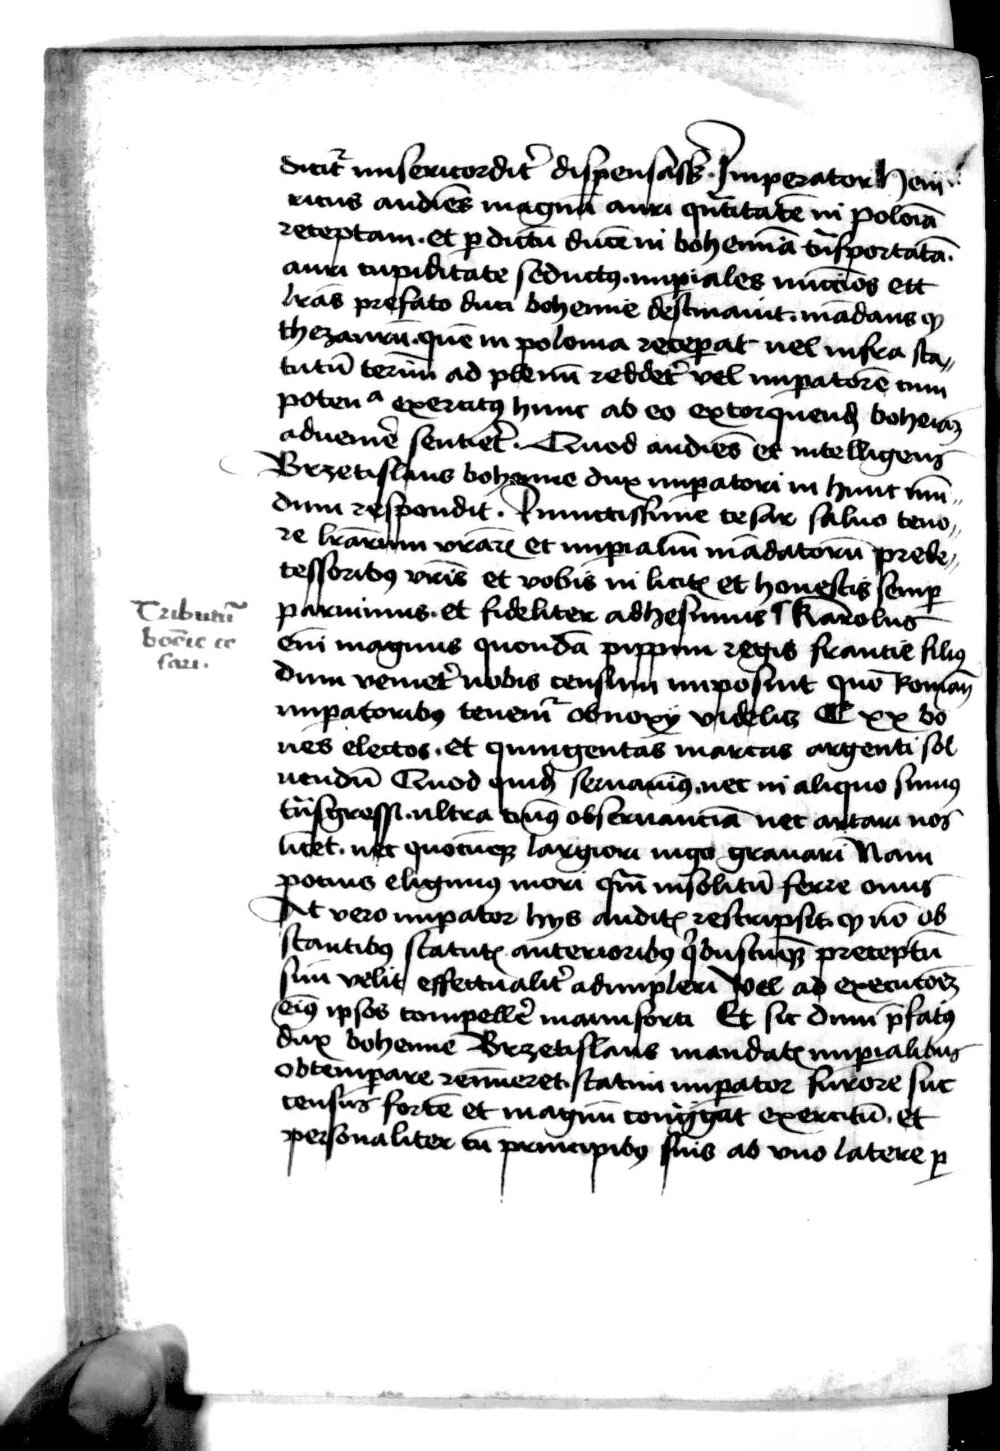 dicit̃ misericordit̾ dispensass̾. Imperator Hein
ricus audiẽs magnũ auri qñtitatẽ in Poloĩa
receptam. et p dictũ ducẽ in bohemiã tñsportatã.
auri cupiditate seductꝯ. imp̱iales nũccios ett
lrãs prefato duci bohemie destinavit. mãdans qꝫ
thezaurũ. quẽ in polonia recep̱at vel infra sta〃
tutũ termĩ ad plenũ reddet̾ vel imp̱atorẽ cum
potenᵃ exercitꝯ hunc ab eo extorquend̾ bohemiã
advenire̾ sentiet̾. Quod audiẽs et intelligens
Brzetislaus bohemie dux imp̱atori in hunc mũ〃
dum respondit. Invictissime cesar salvo teno〃
re lrãrum vrãrꝝ et imp̱ialiũ mãdatorũ prede〃
cessoribꝯ vrĩs et vobis in licitꝭ et honestis semp̱
paruimus. et fideliter adhesimus ¶ Karolus
eñi magnus quondã pippini regis francie filiꝯ
dum veniret̾ nobis censum imposuit quo Romañ
imp̱atoribꝯ tenem̃ obnoxij videlicꝫ C xx bo
ves electos. et quingentas marcas argenti sol
vendũ Quod quid̾ servavimꝯ. nec in aliquo sumꝯ
tñsgressi. ultra cuiꝯ observanciã nec artari nos
licet. nec quocũqꝫ largiori iugo gravari Nam
potius eligimꝯ mori qm̃ insolitũ ferre onus
At vero imp̱ator hijs auditꝭ rescripsit. qꝫ nõ ob
stantibꝯ statutꝭ anterioribꝯ qͥbuscũqꝫ preceptũ
suũ velit effectualit̾ adimpleri Vel ad executõꝫ
eiꝯ ipsos compeller̾ manuforti Et sic dum p̃fatꝯ
dux bohemie Brzetislaus mandatꝭ imp̱ialibus
obtemp̱are reñueret. statim imp̱ator furore suc
census fortẽ et magnũ congregat exercitũ. et
personaliter cũ principibꝯ suis ab uno latere p̱
Tributũ
boẽie ce
sari.